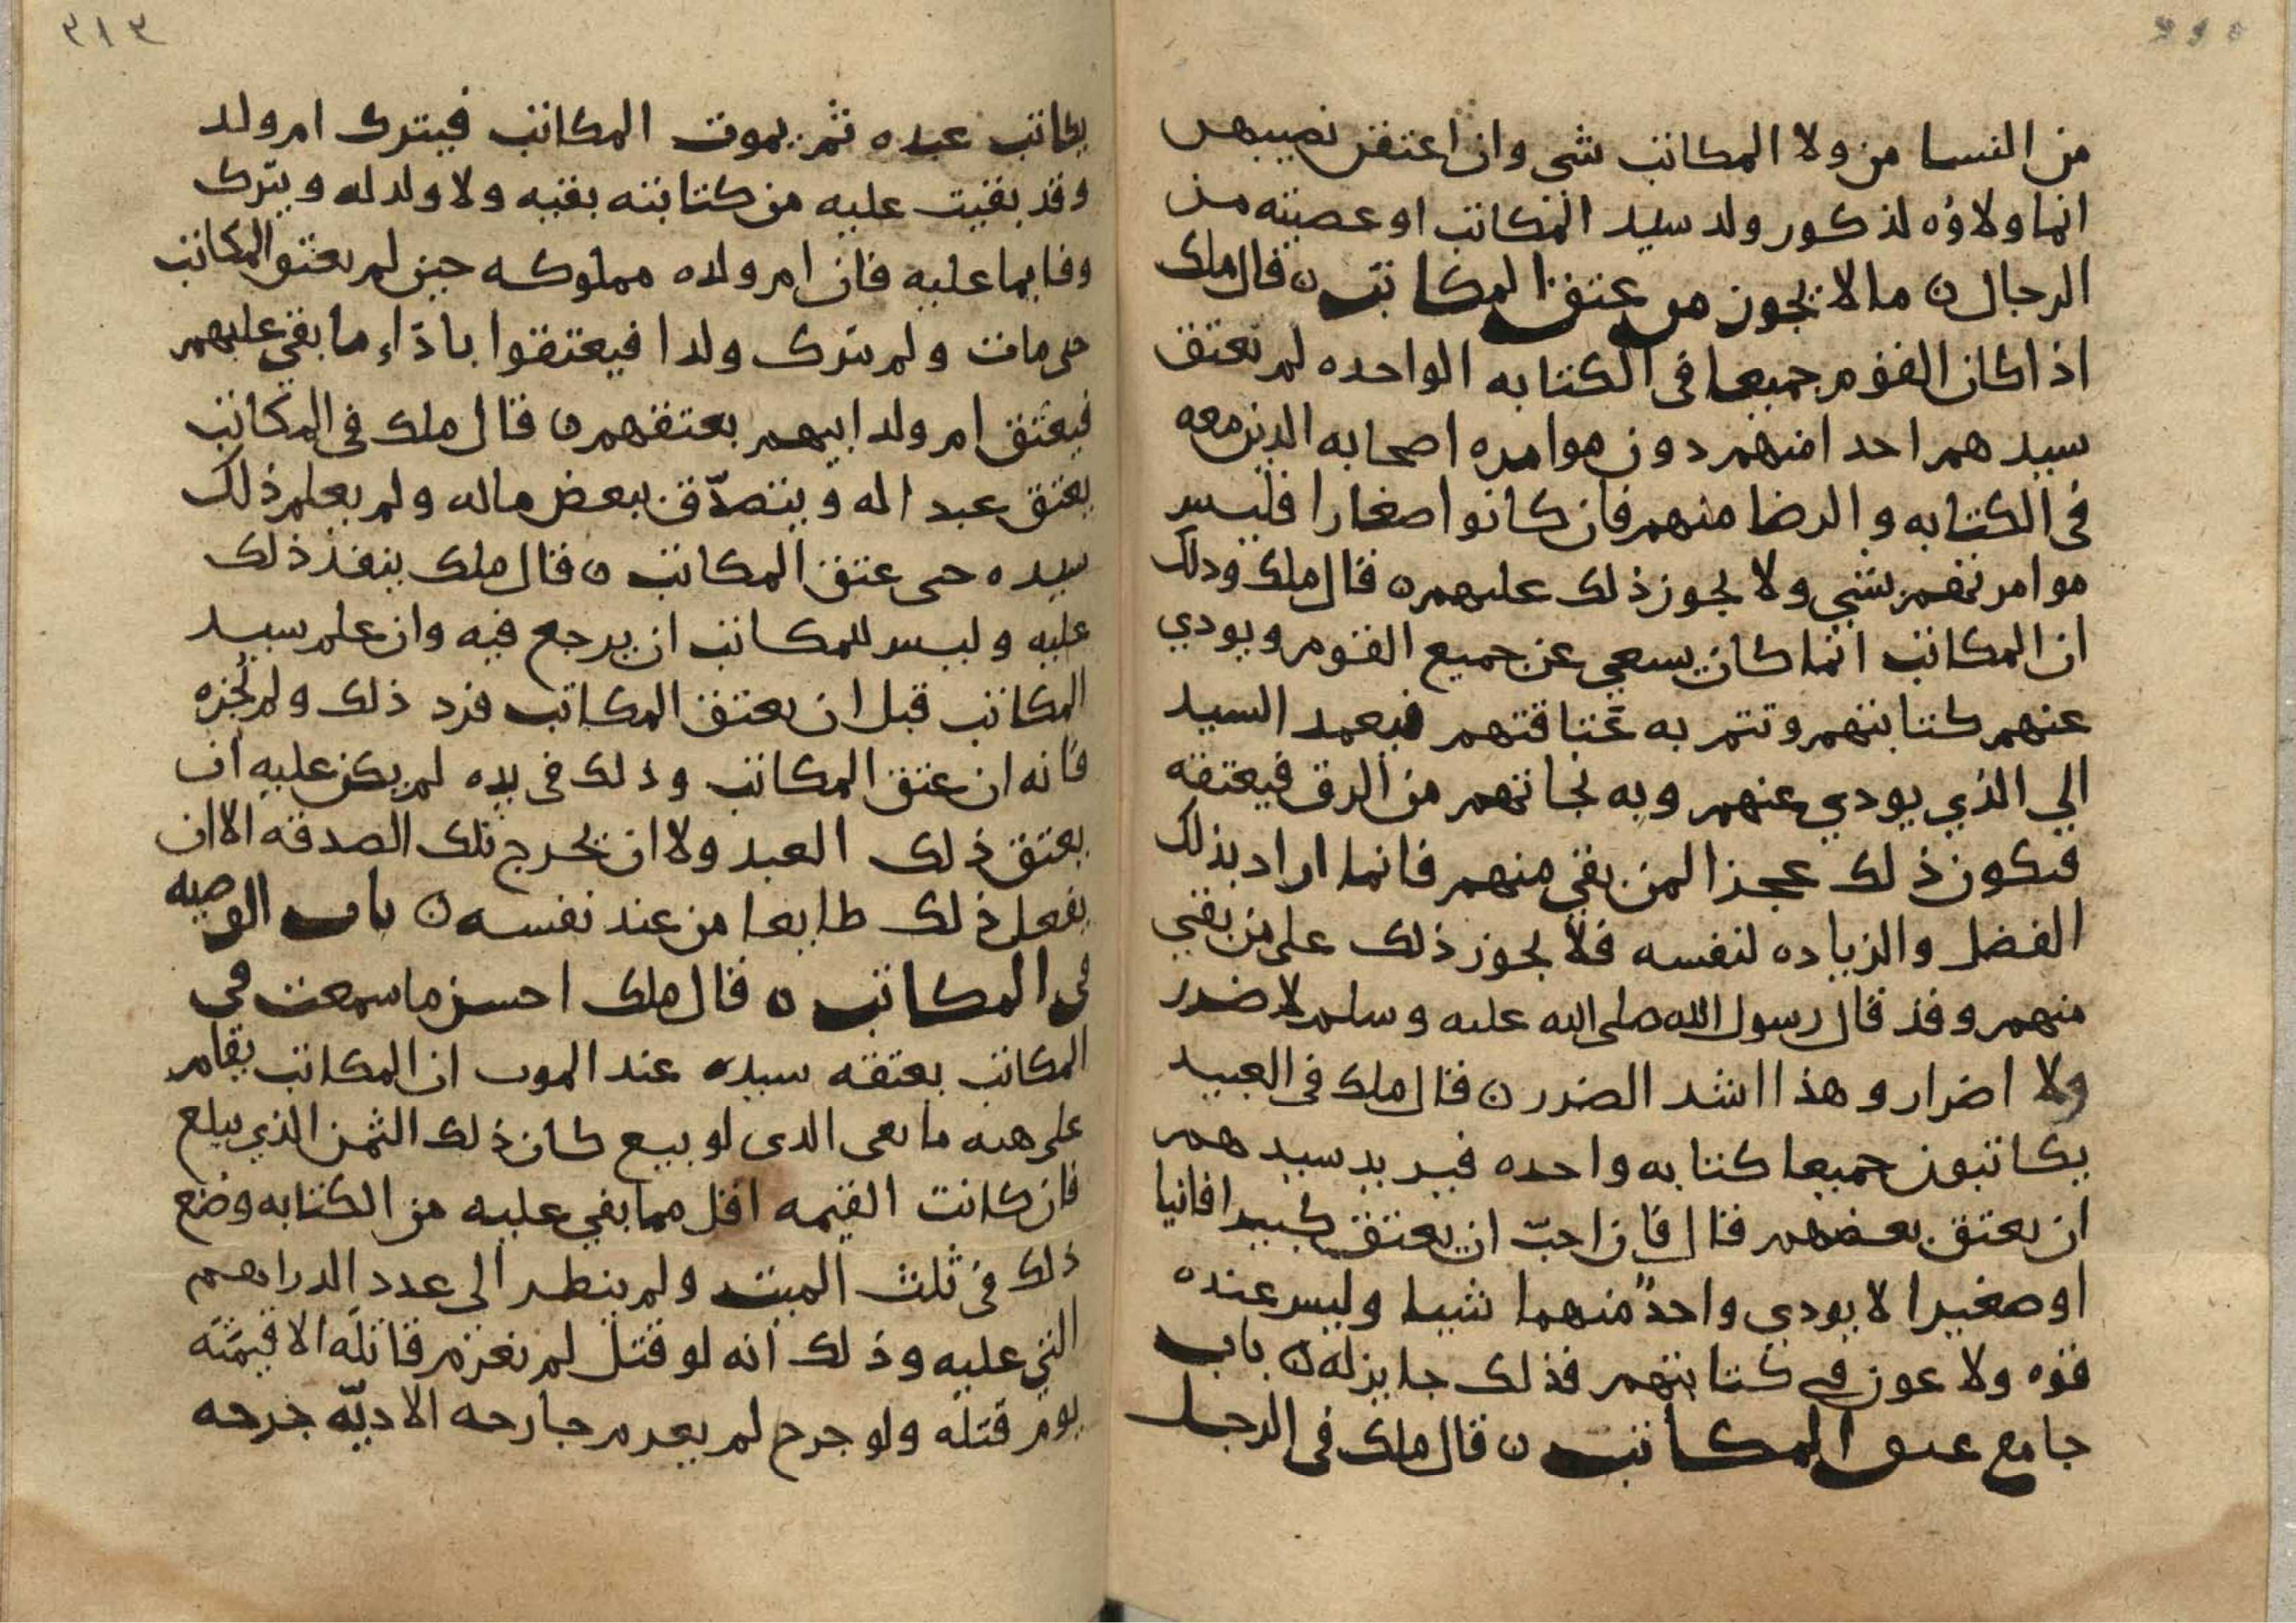 من النسا من ولا المكاتب شي وان اعتقن نصيبهن
انما ولاؤه لذكور ولد سيد المكاتب او عصبته من
الرجال ن ما لا يجوز من عتق المكاتب ن قال ملك
اذا كان القوم جميعا في الكتابه الواحده لم يعتق
سيدهم احدا منهم دون موامره اصحابه الذين معه
في الكتابه والرضا منهم فان كانوا صغارا فليس
موامرتهم بشي ولا يجوز ذلك عليهم ن قال ملك وذلك
ان المكاتب انما كان يسعي عن جميع القوم ويودي
عنهم كتابتهم وتتم به عتاقتهم فيعمد السيد
الي الذي يودي عنهم وبه نجاتهم من الرق فيعتقه
فيكون ذلك عجزا لمن بقي منهم فانما اراد بذلك
الفضل والزياده لنفسه فلا يجوز ذلك على من بقي
منهم وقد قال رسول الله صلى الله عليه وسلم لا ضرر
ولا اضرار وهذا اشد الضرر ن قال ملك في العبيد
يكاتبون جميعا كتابه واحده فيريد سيدهم
ان يعتق بعضهم قال فان احب ان يعتق كبيرا فانيا
او صغيرا لا يودي واحدٌ منهما شيا وليس عنده
قوه ولا عون في كتابتهم فذلك جايز له ن باب
جامع عتق المكاتب ن قال ملك في الرجل
٣١٣
يكاتب عبده ثم يموت المكاتب فيترك ام ولد
وقد بقيت عليه من كتابته بقيه ولا ولد له ويترك
وفا بما عليه فان ام ولده مملوكه حين لم يعتق المكاتب
حى مات ولم يترك ولدا فيعتقوا باداء ما بقي عليهم
فيعتق ام ولد ابيهم بعتقهم ن قال ملك في المكاتب
يعتق عبدا له ويتصدّق ببعض ماله ولم يعلم ذلك
سيده حى عتق المكاتب ن قال ملك ينفذ ذلك
عليه وليس للمكاتب ان يرجع فيه وان علم سيد
المكاتب قبل ان يعتق المكاتب فرد ذلك ولم يُجزه
فانه ان عتق المكاتب وذلك في يده لم يكن عليه ان
يعتق ذلك العبد ولا ان يخرج تلك الصدقه الا ان
يفعل ذلك طايعا من عند نفسه ن باب الوصيه
في المكاتب ن قال ملك احسن ما سمعت في
المكاتب يعتقه سيده عند الموت ان المكاتب يقام
على هيه ما بقى الذى لو بيع كان ذلك الثمن الذي يبلع
فان كانت القيمه اقل مما بقي عليه من الكتابه وضع
ذلك في ثلث الميت ولم ينطر الى عدد الدراهم
التي عليه وذلك انه لو قتل لم يغرم قاتله الا قيمته
يوم قتله ولو جرح لم يغرم جارحه الا ديّه جرحه